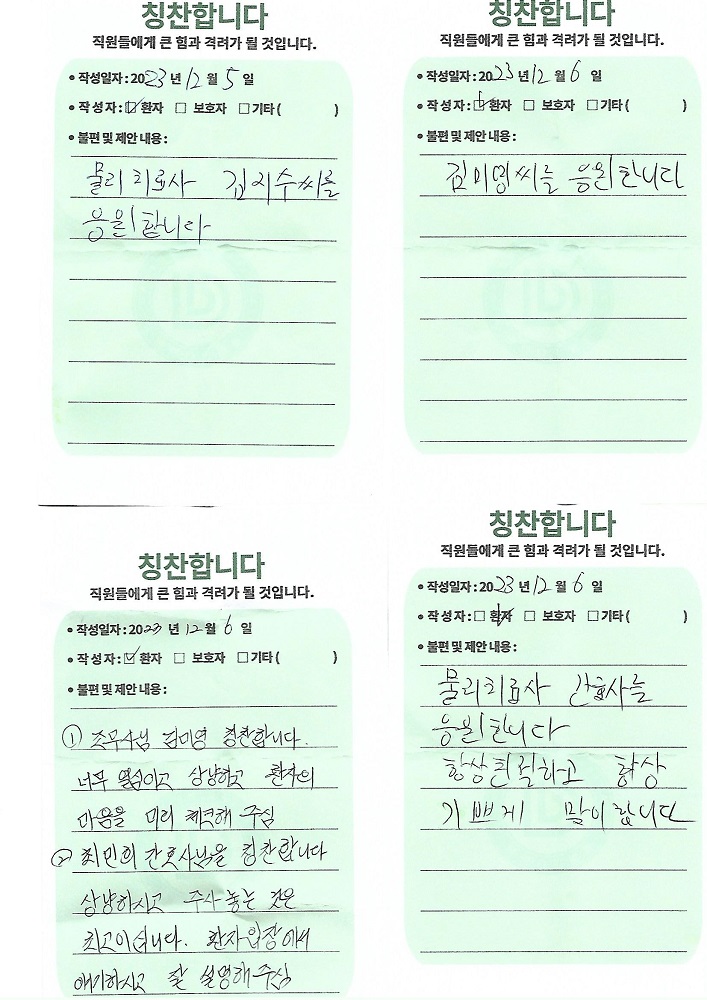 칭찬합니다
직원들에게 큰 힘과 격려가 될 것입니다.
• 작성일자 : 2023 년 12 월 5 일
• 작 성 자 : ☑ 환자 ☐ 보호자 ☐ 기타 ( )
• 불편 및 제안 내용 :
물리치료사 김지수씨를
응원합니다
칭찬합니다
직원들에게 큰 힘과 격려가 될 것입니다.
• 작성일자 : 2023 년 12 월 6 일
• 작 성 자 : ☑ 환자 ☐ 보호자 ☐ 기타 ( )
• 불편 및 제안 내용 :
김미영씨를 응원합니다
칭찬합니다
직원들에게 큰 힘과 격려가 될 것입니다.
• 작성일자 : 2023 년 12 월 6 일
• 작 성 자 : ☑ 환자 ☐ 보호자 ☐ 기타 ( )
• 불편 및 제안 내용 :
① 조무사님 김미영 칭찬합니다.
너무 열심이고 상냥하고 환자의
마음을 미리 체크해 주심
② 최민희 간호사님을 칭찬합니다
상냥하시고 주사 놓는 것은
최고이십니다. 환자입장에서
얘기하시고 잘 설명해주심
칭찬합니다
직원들에게 큰 힘과 격려가 될 것입니다.
• 작성일자 : 2023 년 12 월 6 일
• 작 성 자 : ☐ 환자 ☐ 보호자 ☐ 기타 ( )
• 불편 및 제안 내용 :
물리치료사 간호사를
응원합니다
항상친절하고 항상
기쁘게 말이합니다